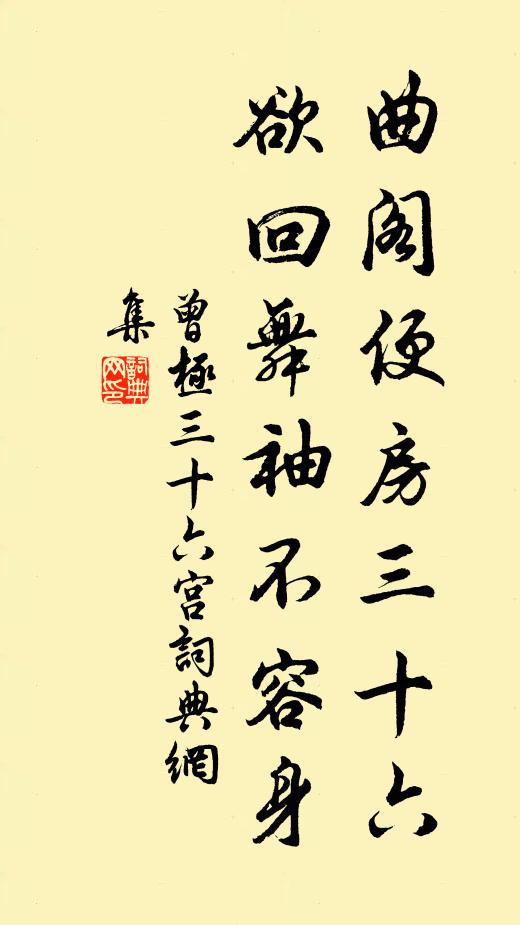 曲阁便房三十六
欲回舞袖不容身
曾極三十六宫詞典網
集
詞典网印